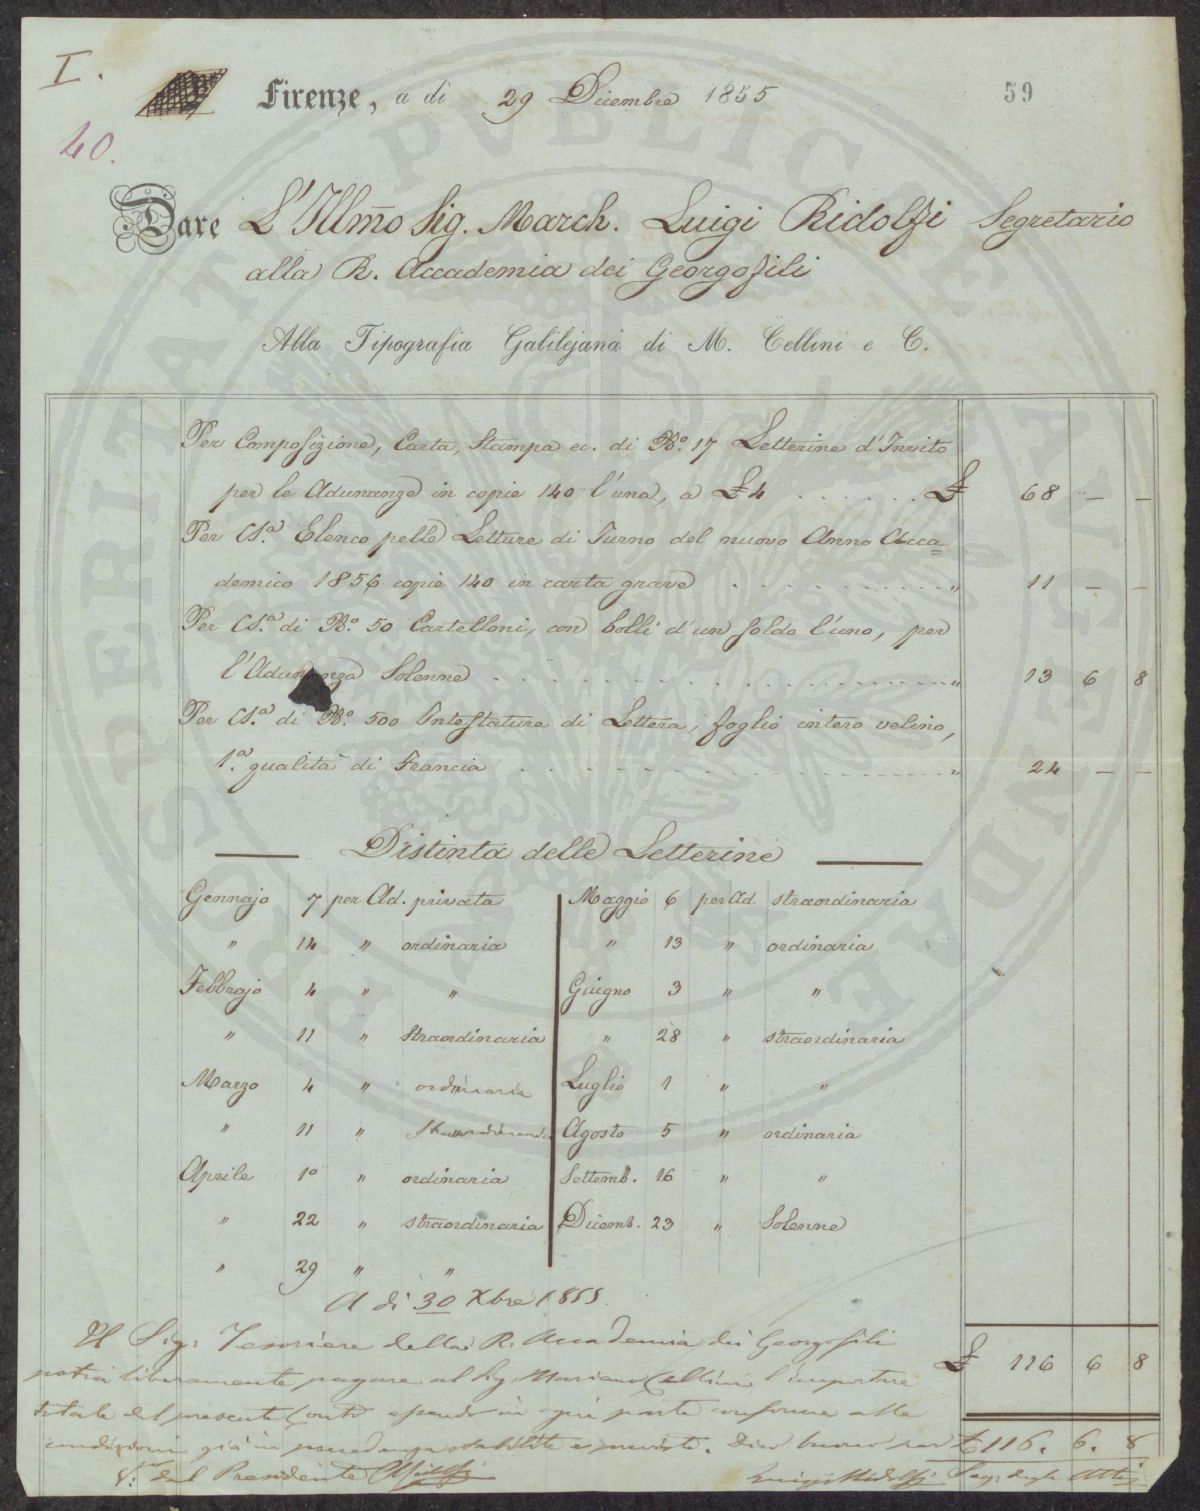 I.
40.
Firenze, a dì 29 Dicembre 1855
59
Dare L'Illmo Sig. March. Luigi Ridolfi Segretario
alla R. Accademia dei Georgofili
Alla Tipografia Galilejana di M. Cellini e C.
Per Composizione, Carta, Stampa ec. di No. 17 Letterine d'Invito
per le Adunanze in copie 140 l'una, a £ 4 . . . . . . £ 68 — —
Per Cs.a Elenco pelle Letture di Turno del nuovo Anno Acca=
demico 1856 copie 140 in carta grave . . . . . . " 11 — —
Per Cs.a di No. 50 Cartelloni, con bolli d'un soldo l'uno, per
l'Adunanza Solenne . . . . . . " 13 6 8
Per Cs.a di No. 500 Intestature di Lettera, foglio intero velino,
1.a qualità di Francia . . . . . . " 24 — —
Distinta delle Letterine
Gennajo 7 per Ad. privata Maggio 6 per Ad straordinaria
" 14 " ordinaria " 13 " ordinaria
Febbrajo 4 " " Giugno 3 " "
" 11 " straordinaria " 28 " straordinaria
Marzo 4 " ordinaria Luglio 1 " "
" 11 " straordinaria Agosto 5 " ordinaria
Aprile 1o " ordinaria Settemb. 16 " "
" 22 " straordinaria Dicemb. 23 " Solenne
" 29 " "
A dì 30 Xbre 1855.
Il Sig: Tesoriere della R. Accademia dei Georgofili
£ 116 6 8
potrà liberamente pagare al Sig. Mariano Cellini l'importare
totale del presente Conto essendo in ogni parte conforme alle
condizioni già in precedenza stabilite e previste. Dico buono per £ 116. 6. 8
del Presidente Ridolfi
Luigi Ridolfi Seg: degli Atti
PROSPERITATI PVBLICAE AVGENDAE